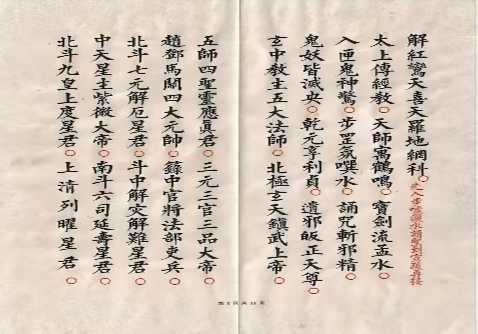 解紅鸞天喜天羅地網科○
太上傳經教○天師寓鶴鳴○寶劍流盂水○
入匣鬼神驚○步罡氛噀水○誦咒斬邪精○
鬼妖皆滅央○乾元亨利貞○遣邪皈正天尊○
玄中教主五大法師○北極玄天鎮武上帝○
五師四聖靈應真君○三元三官三品大帝○
趙鄧馬關四大元帥○籙中官將法部吏兵○
北斗七元解厄星君○斗中解灾解難星君○
中天星主紫微大帝○南斗六司延壽星君○
北斗九皇上度星君○上清列曜星君○